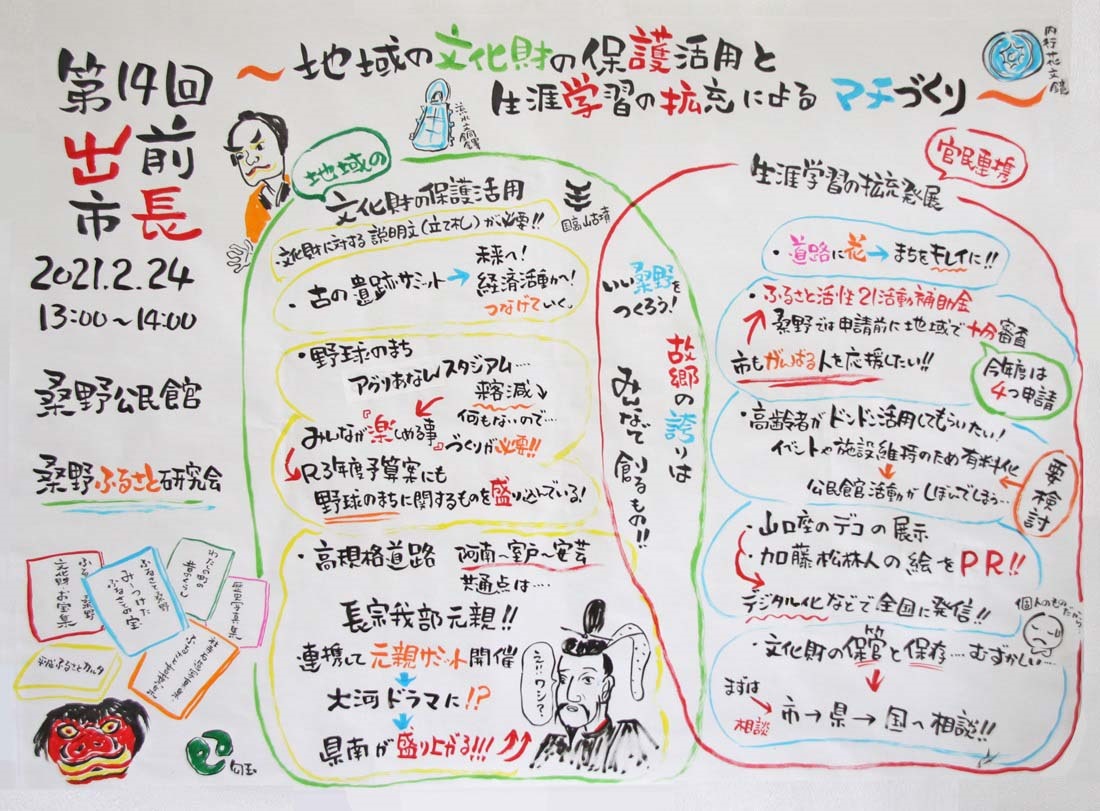 第14回
出前
市長
2021.2.24
13:00～14:00
桑野公民館
桑野ふるさと研究会
～地域の文化財の保護活用と
生涯学習の拡充によるマチづくり～
内行花文鏡
地域の
文化財の保護活用
国高山古墳
文化財に対する説明文(立て札)が必要!!
・古の遺跡サミット→未来へ!
経済活動へ!
つなげていく。
・野球のまち
アグリあなんスタジアム‥‥
来客減
何もないので‥
みんなが『楽しめる事』づくりが必要!!
R3年度予算案にも
野球のまちに関するものを盛り込んでいる!
・高規格道路 阿南～室戸～安芸
共通点は‥‥
長宗我部元親!!
連携して元親サミット開催
大河ドラマに!?
県南が盛り上がる!!!
え!?ワシ?
いい桑野を
つくろう!
故郷の誇りは
みんなで創るもの!!
官民連携
生涯学習の拡充発展
・道路に花→まちをキレイに!!
・ふるさと活性21活動補助金
桑野では申請前に地域で十分審査
市もがんばる人を応援したい!!
今年度は
4つ申請
・高齢者がドンドン活用してもらいたい!
イベントや施設維持のため有料化
公民館活動がしぼんでしまう‥
要検討
・山口座のデコの展示
・加藤松林人の絵をPR!!
デジタル化などで全国に発信!!
個人のものだから‥
・文化財の保管と保存‥‥むずかしい‥‥
まずは
相談
市→県→国へ相談!!
ふるさと桑野
文化財お宝集
ふるさと桑野
みーつけた
ふるさとの宝
わたしの町の
昔のくらし
勾玉